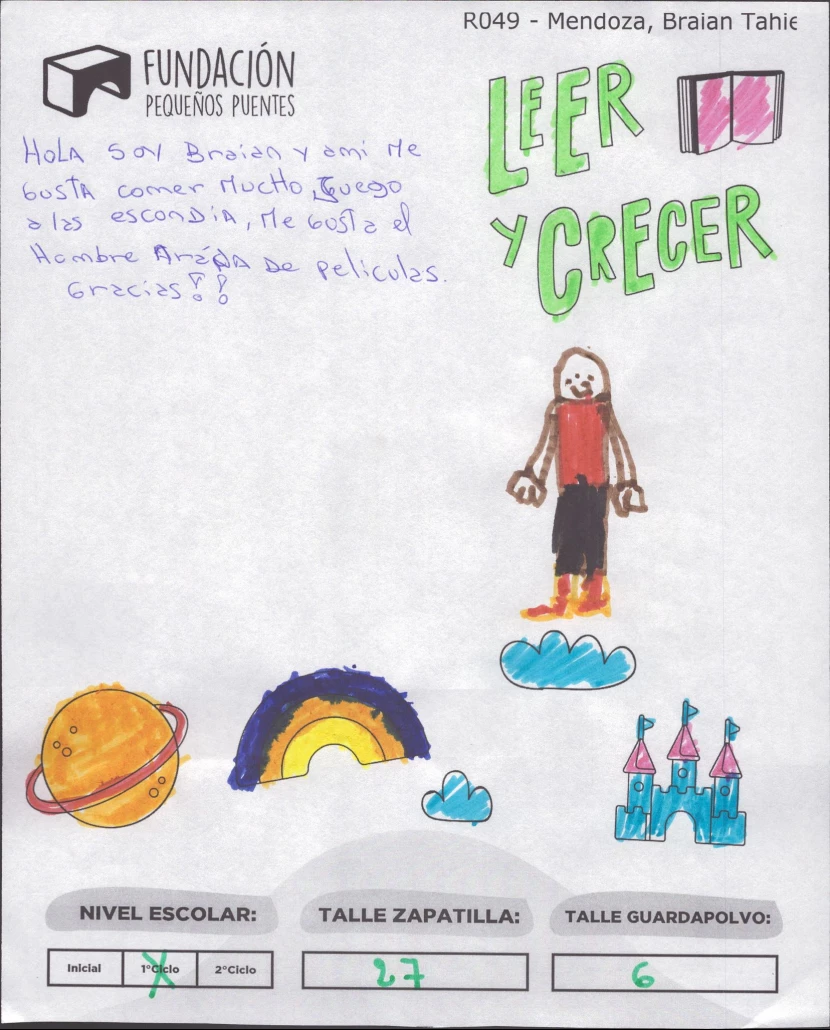 R049 - Mendoza, Braian Tahie
FUNDACIÓN
PEQUEÑOS PUENTES
LEER
Y CRECER
HOLA SOY Braian y ami Me
GUSTA comer Mucho, Juego
a las esconDiA, Me Gusta el
Hombre Araña De películas.
Gracias!!
NIVEL ESCOLAR:
Inicial
1°Ciclo
2°Ciclo
TALLE ZAPATILLA:
27
TALLE GUARDAPOLVO:
6